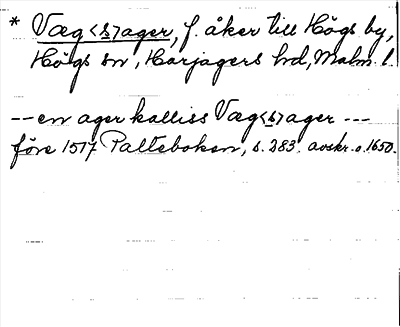 * Væg<s>ager, f. åker till Högs by,
Högs sn, Harjagers hd, Malm. l.
-- en ager kalliss Væg<s>ager ---
före 1517 Palteboken, s. 283. avskr. o. 1650.